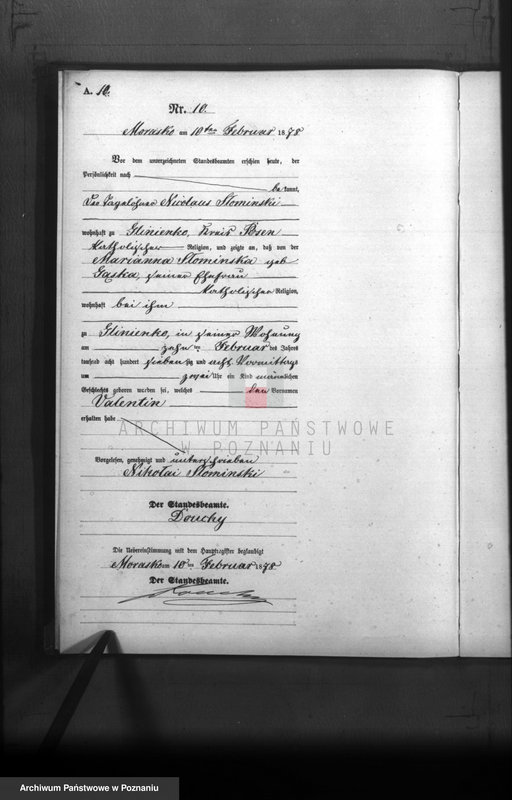 A. 10.
Nr. 10.
Morasko am 10ten Februar 1878
Vor dem unterzeichneten Standesbeamten erschien heute, der
Persönlichkeit nach
bekannt,
Der Tagelöhner Nicolaus Słominski
wohnhaft zu Glinienko, Kreis Posen
katholischer Religion, und zeigte an, daß von der
Marianna Słominska geb
Gaska, seiner Ehefrau
katholischer Religion,
wohnhaft bei ihm
zu Glinienko, in seiner Wohnung
am zehn ten Februar des Jahres
tausend acht hundert sieben zig und acht Vormittags
um zwei Uhr ein Kind männlichen
Geschlechts geboren worden sei, welches den Vornamen
Valentin
erhalten habe
ARCHIWUM PAŃSTWOWE
W POZNANIU
Vorgelesen, genehmigt und unterschrieben
Nikołai Słominski
Der Standesbeamte.
Douchy
Die Uebereinstimmung mit dem Hauptregister beglaubigt
Morasko am 10ten Februar 1878
Der Standesbeamte.
Douchy
Archiwum Państwowe w Poznaniu